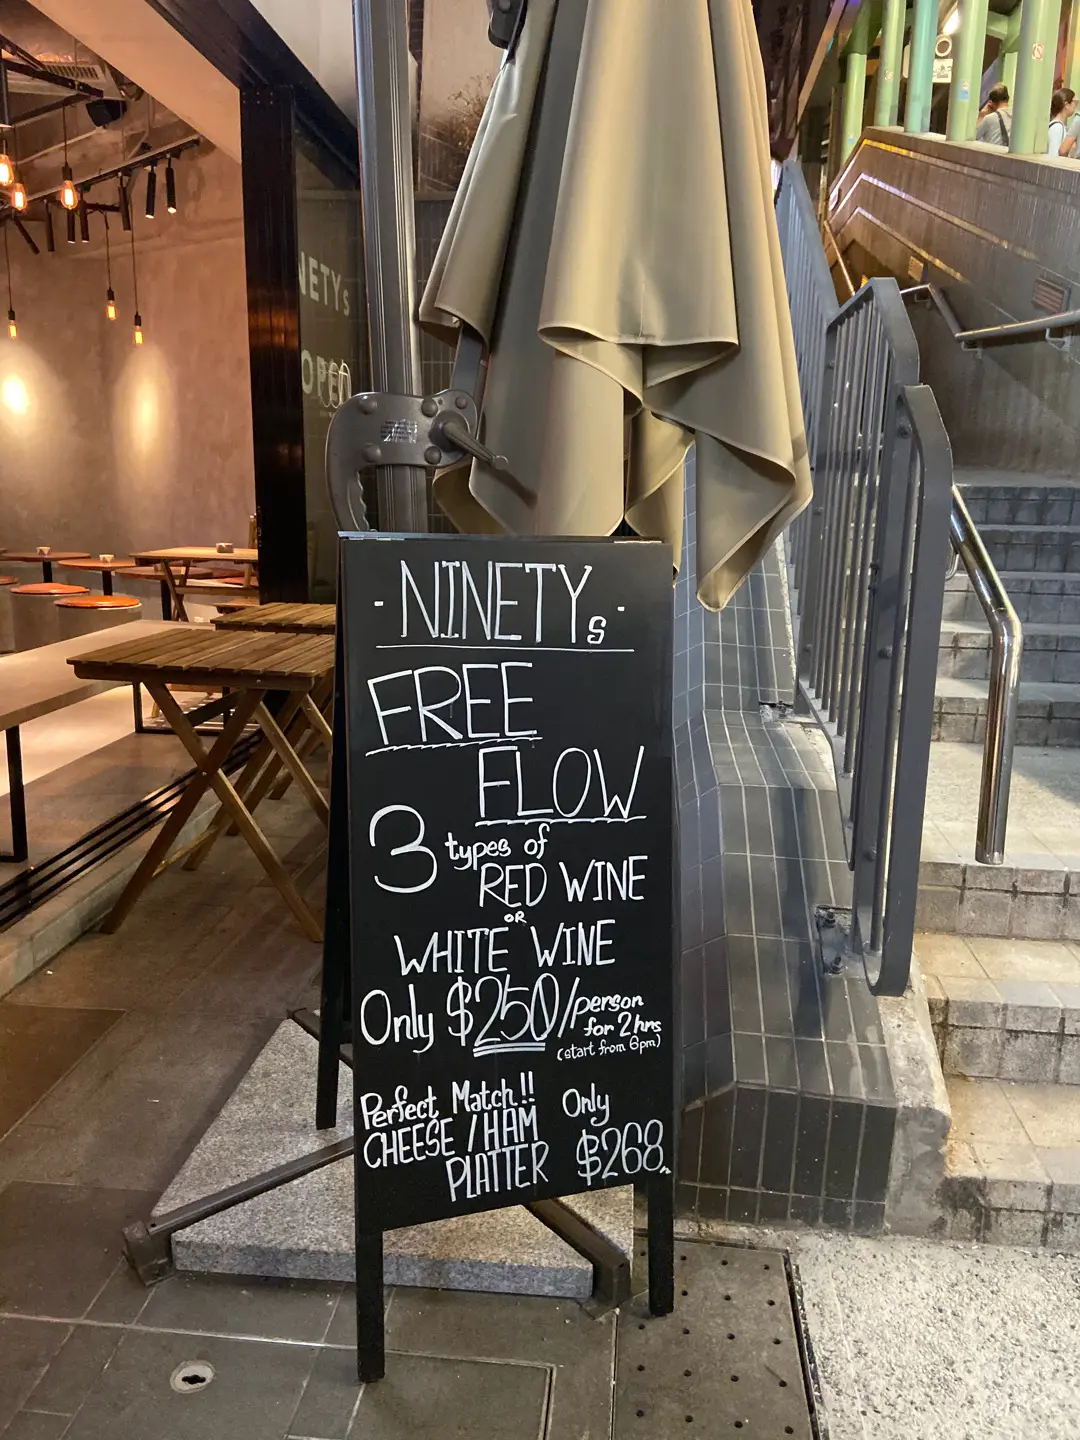 NETYs
OPEN
- NINETYs -
FREE
FLOW
3 types of
RED WINE
OR
WHITE WINE
Only $250/person
for 2hrs
(start from 6pm)
Perfect Match!! Only
CHEESE / HAM
PLATTER $268